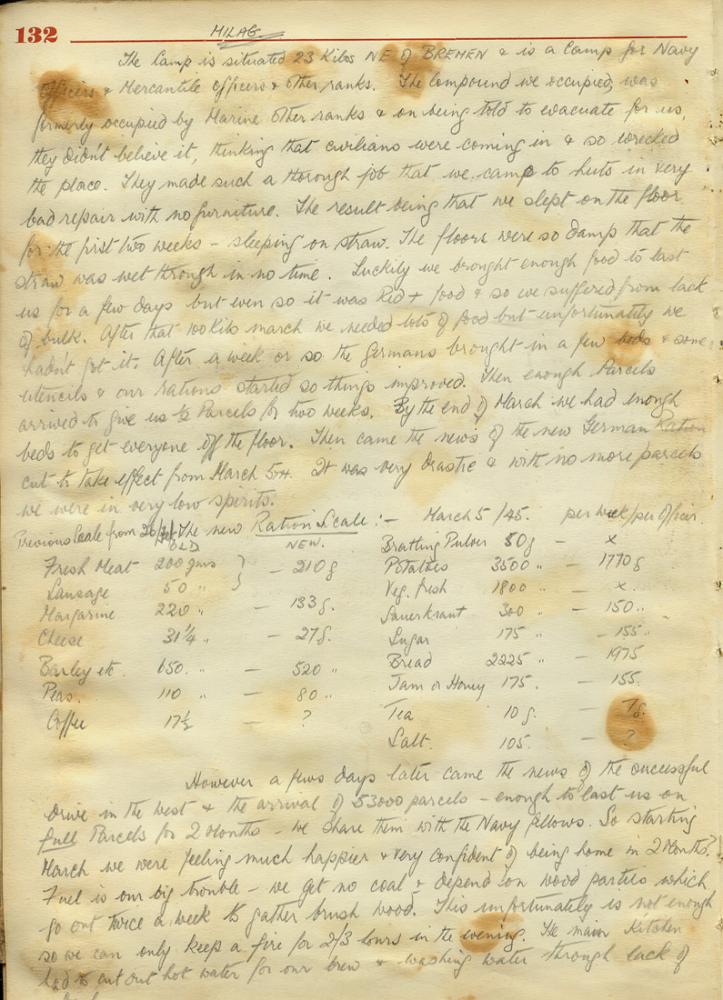 132
MILAG
The Camp is situated 23 Kilos NE of BREMEN & is a Camp for Navy
Officers & Mercantile officers & other ranks. The compound we occupied, was
formerly occupied by Marine other ranks & on being told to evacuate for us,
they didn't believe it, thinking that civilians were coming in & so wrecked
the place. They made such a thorough job that we came to huts in very
bad repair with no furniture. The result being that we slept on the floor
for the first two weeks - sleeping on straw. The floors were so damp that the
straw was wet through in no time. Luckily we brought enough food to last
us for a few days but even so it was Red + food & so we suffered from lack
of bulk. After that 100 kilo march we needed lots of food but unfortunately we
hadn't got it. After a week or so the Germans brought in a few beds & some
utencils & our rations started so things improved. Then enough Parcels
arrived to give us ½ Parcels for two weeks. By the end of March we had enough
beds to get everyone off the floor. Then came the news of the new German Ration
cut to take effect from March 5th. It was very drastic & with no more parcels
we were in very low spirits.
Previous Scale from The new Ration Scale :- March 5 /45. per week/per Officer
OLD NEW.
Fresh Meat 200 gms } - 210 g
Sausage 50 "
Margarine 220 " - 133 g.
Cheese 31¼ " - 27 g.
Barley etc 650. " - 520 "
Peas. 110 " - 80 "
Coffee 17½ - ?
Bratling Pulver 50 g - x
Potatoes 3500 " - 1770 g
Veg. fresh 1800 " - x.
Sauerkraut 300 " - 150 "
Sugar 175 " - 155 "
Bread 2225 " - 1975
Jam or Honey 175. - 155.
Tea 10 g. - 7g.
Salt. 105. - ?
However a fews days later came the news of the successful
Drive in the West & the arrival of 53000 parcels - enough to last us on
full Parcels for 2 Months - we share them with the Navy fellows. So starting
March we were feeling much happier & very confident of being home in 2 Months?
Fuel is our big trouble - we get no coal & depend on wood parties which
go out twice a week to gather brush wood. This unfortunately is not enough
so we can only keep a fire for 2/3 hours in the evening. The main Kitchen
had to cut out hot water for our brew & washing water through lack of